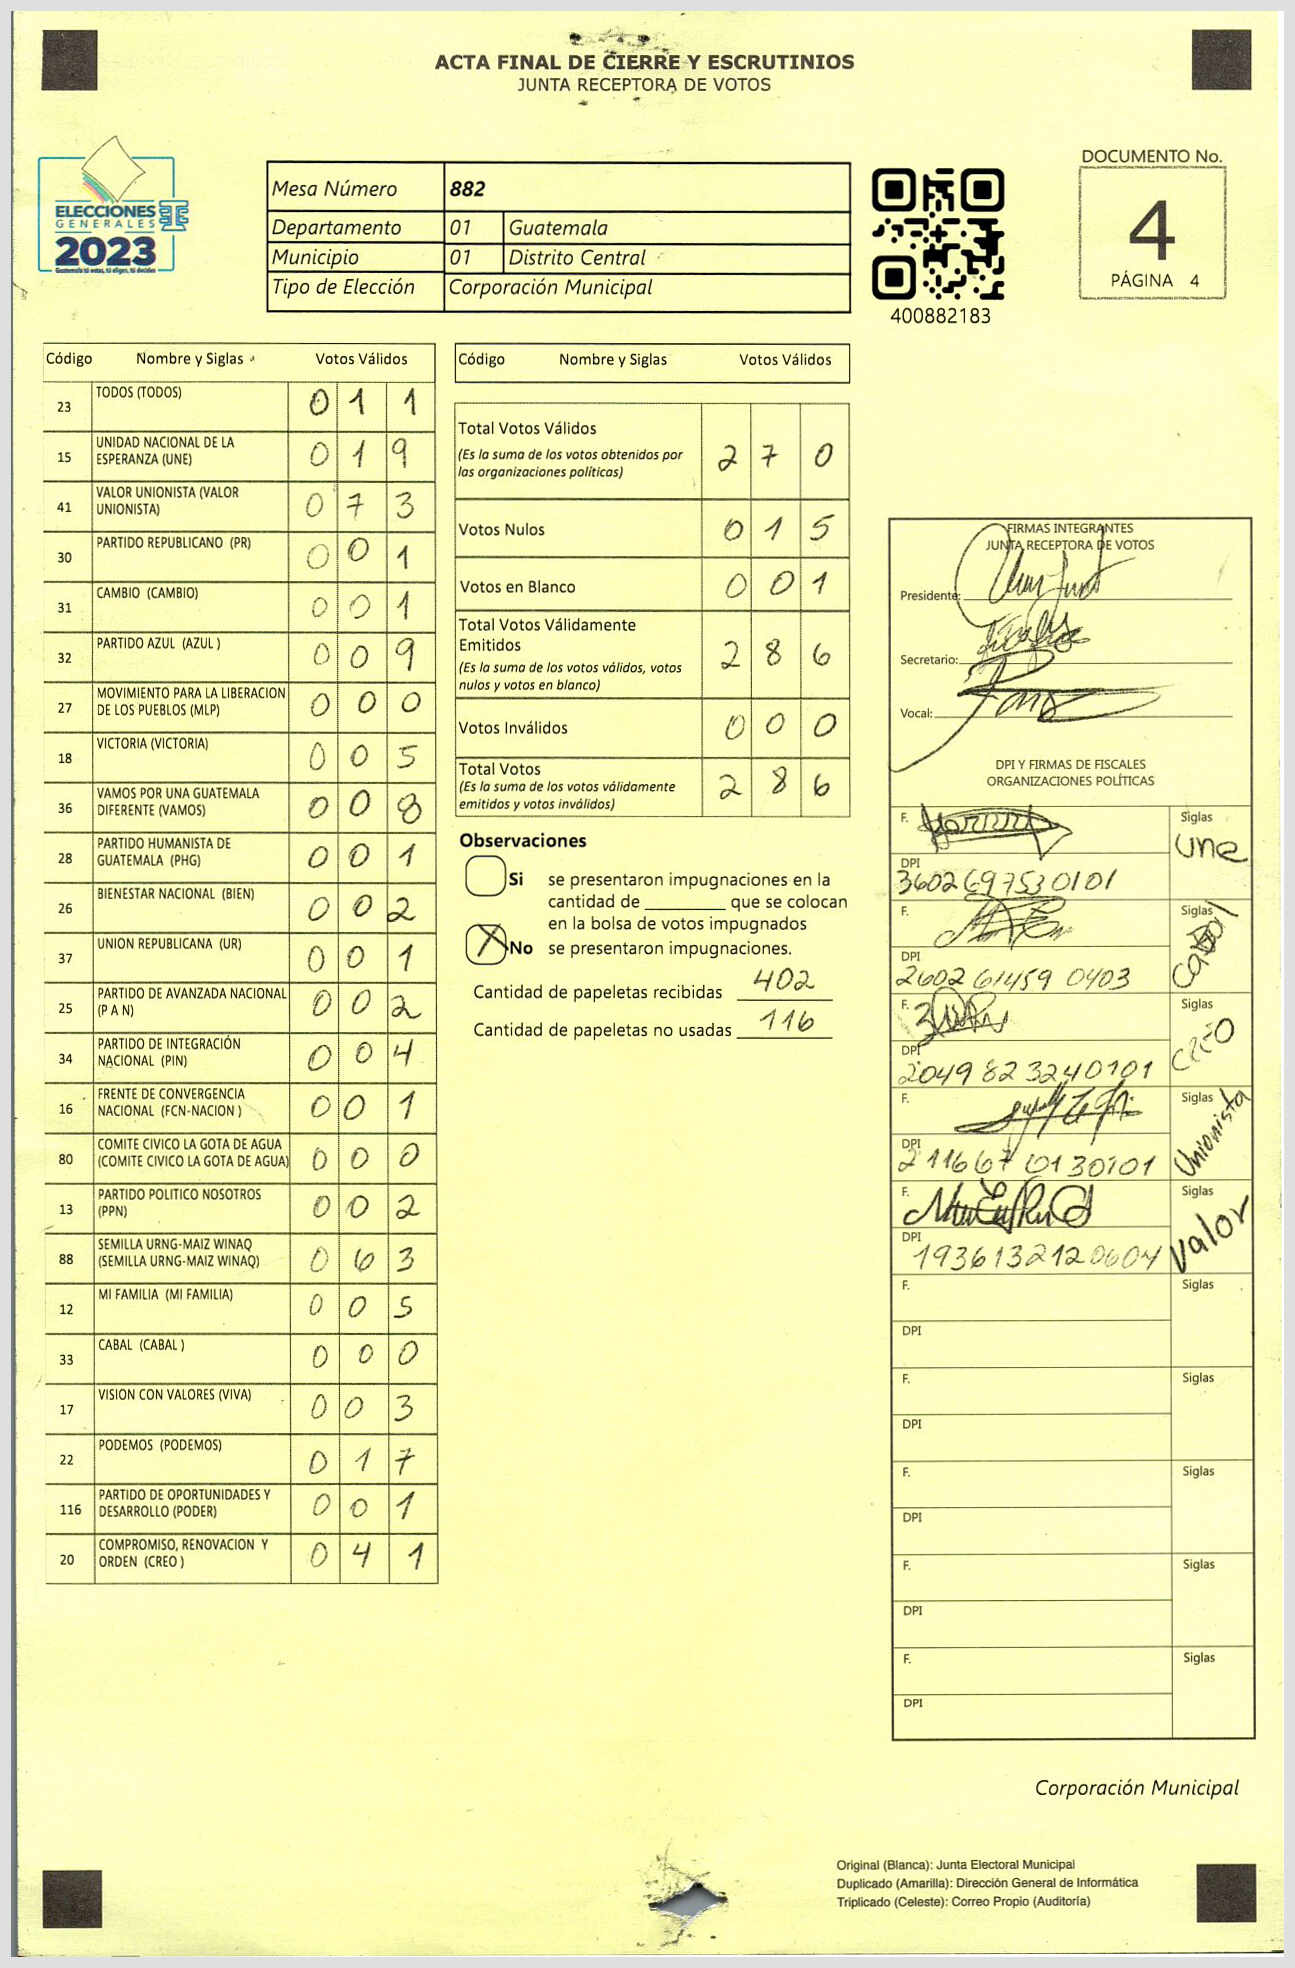 ACTA FINAL DE CIERRE Y ESCRUTINIOS
JUNTA RECEPTORA DE VOTOS
ELECCIONES
GENERALES
2023
Guatemala tú votas, tú eliges, tú decides
Mesa Número 882
Departamento 01 Guatemala
Municipio 01 Distrito Central
Tipo de Elección Corporación Municipal
400882183
DOCUMENTO No.
4
PÁGINA 4
Código Nombre y Siglas Votos Válidos
23 TODOS (TODOS) 0 1 1
15 UNIDAD NACIONAL DE LA
ESPERANZA (UNE) 0 1 9
41 VALOR UNIONISTA (VALOR
UNIONISTA) 0 7 3
30 PARTIDO REPUBLICANO (PR) 0 0 1
31 CAMBIO (CAMBIO) 0 0 1
32 PARTIDO AZUL (AZUL ) 0 0 9
27 MOVIMIENTO PARA LA LIBERACION
DE LOS PUEBLOS (MLP) 0 0 0
18 VICTORIA (VICTORIA) 0 0 5
36 VAMOS POR UNA GUATEMALA
DIFERENTE (VAMOS) 0 0 8
28 PARTIDO HUMANISTA DE
GUATEMALA (PHG) 0 0 1
26 BIENESTAR NACIONAL (BIEN) 0 0 2
37 UNION REPUBLICANA (UR) 0 0 1
25 PARTIDO DE AVANZADA NACIONAL
(P A N) 0 0 2
34 PARTIDO DE INTEGRACIÓN
NACIONAL (PIN) 0 0 4
16 FRENTE DE CONVERGENCIA
NACIONAL (FCN-NACION ) 0 0 1
80 COMITE CIVICO LA GOTA DE AGUA
(COMITE CIVICO LA GOTA DE AGUA) 0 0 0
13 PARTIDO POLITICO NOSOTROS
(PPN) 0 0 2
88 SEMILLA URNG-MAIZ WINAQ
(SEMILLA URNG-MAIZ WINAQ) 0 6 3
12 MI FAMILIA (MI FAMILIA) 0 0 5
33 CABAL (CABAL ) 0 0 0
17 VISION CON VALORES (VIVA) 0 0 3
22 PODEMOS (PODEMOS) 0 1 7
116 PARTIDO DE OPORTUNIDADES Y
DESARROLLO (PODER) 0 0 1
20 COMPROMISO, RENOVACION Y
ORDEN (CREO ) 0 4 1
Código Nombre y Siglas Votos Válidos
Total Votos Válidos
(Es la suma de los votos obtenidos por
las organizaciones políticas) 2 7 0
Votos Nulos 0 1 5
Votos en Blanco 0 0 1
Total Votos Válidamente
Emitidos
(Es la suma de los votos válidos, votos
nulos y votos en blanco) 2 8 6
Votos Inválidos 0 0 0
Total Votos
(Es la suma de los votos válidamente
emitidos y votos inválidos) 2 8 6
Observaciones
Si se presentaron impugnaciones en la
cantidad de ________ que se colocan
en la bolsa de votos impugnados
X No se presentaron impugnaciones.
Cantidad de papeletas recibidas 402
Cantidad de papeletas no usadas 116
FIRMAS INTEGRANTES
JUNTA RECEPTORA DE VOTOS
Presidente:
Secretario:
Vocal:
DPI Y FIRMAS DE FISCALES
ORGANIZACIONES POLÍTICAS
F. Siglas
une
DPI
3602697530101
F. Siglas
Cabal
DPI
2602 61459 0403
F. Siglas
creo
DPI
2049 82 3240101
F. Siglas
Unionista
DPI
211667 0130101
F. Siglas
Valor
DPI
1936132120604
F. Siglas
DPI
F. Siglas
DPI
F. Siglas
DPI
F. Siglas
DPI
F. Siglas
DPI
Corporación Municipal
Original (Blanca): Junta Electoral Municipal
Duplicado (Amarilla): Dirección General de Informática
Triplicado (Celeste): Correo Propio (Auditoría)